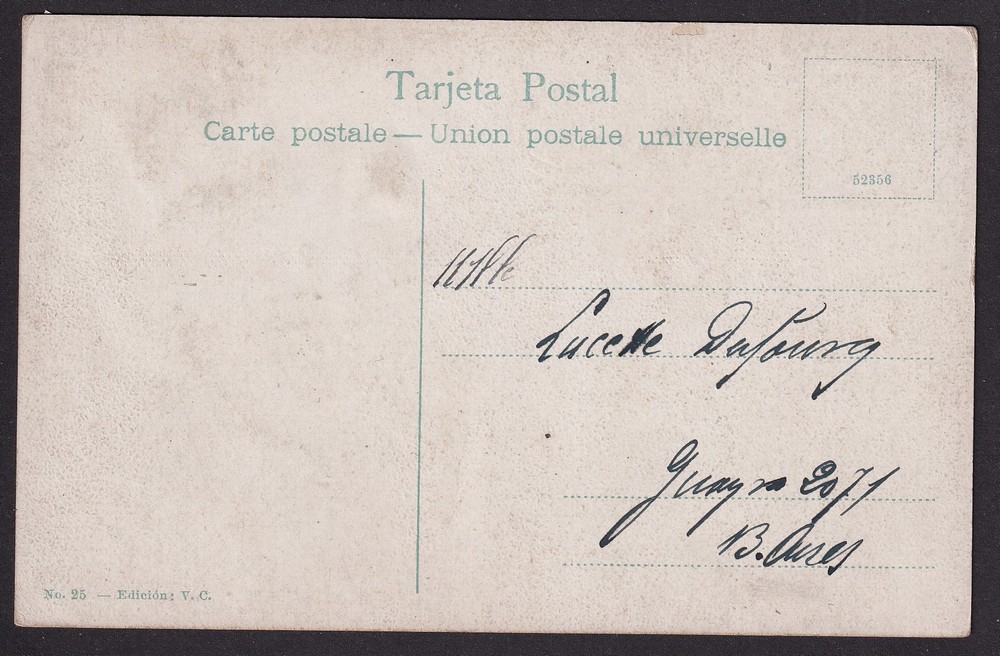 Tarjeta Postal
Carte postale — Union postale universelle
52356
Mlle
Lucette Dufourg
Guayra 2071
B. Aires
No. 25 — Edición: V. C.